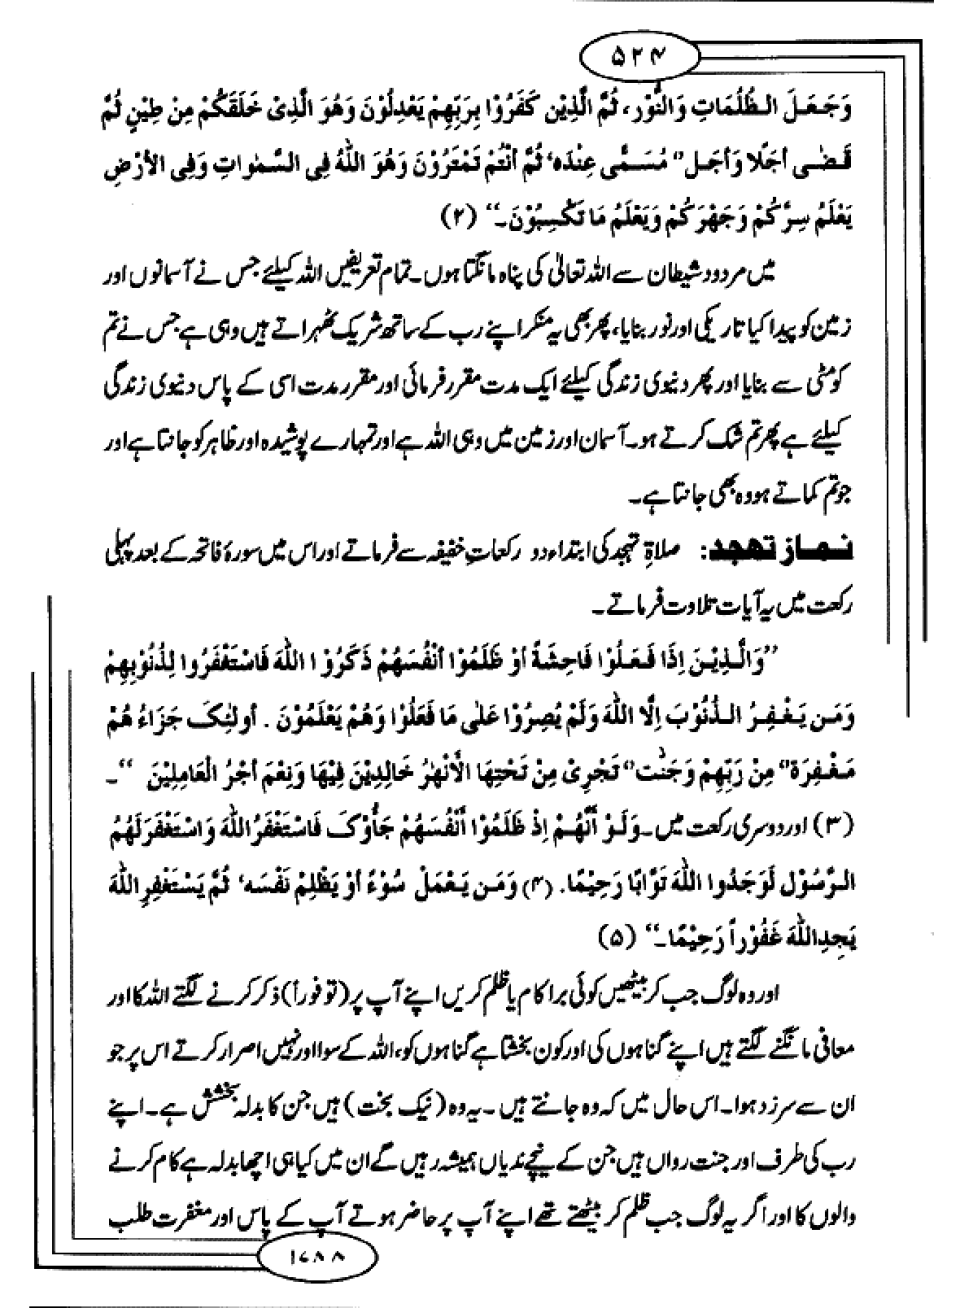 ۵۲۴
وَجَعَلَ الظُّلُمَاتِ وَالنُّوْرَ، ثُمَّ الَّذِيْنَ كَفَرُوْا بِرَبِّهِمْ يَعْدِلُوْنَ وَهُوَ الَّذِىْ خَلَقَكُمْ مِنْ طِيْنٍ ثُمَّ
قَضٰى أَجَلًا وَأَجَل'' مُسَمًّى عِنْدَه' ثُمَّ أَنْتُمْ تَمْتَرُوْنَ وَهُوَ اللّٰهُ فِى السَّمٰواتِ وَفِى الأَرْضِ
يَعْلَمُ سِرَّكُمْ وَجَهْرَكُمْ وَيَعْلَمُ مَا تَكْسِبُوْنَ۔'' (۲)
میں مردود شیطان سے اللہ تعالیٰ کی پناہ مانگتا ہوں۔ تمام تعریفیں اللہ کیلئے جس نے آسمانوں اور
زمین کو پیدا کیا تاریکی اور نور بنایا، پھر بھی یہ منکر اپنے رب کے ساتھ شریک ٹھہراتے ہیں وہی ہے جس نے تم
کو مٹی سے بنایا اور پھر دنیوی زندگی کیلئے ایک مدت مقرر فرمائی اور مقرر مدت اسی کے پاس دنیوی زندگی
کیلئے ہے پھر تم شک کرتے ہو۔ آسمان اور زمین میں وہی اللہ ہے اور تمہارے پوشیدہ اور ظاہر کو جانتا ہے اور
جو تم کماتے ہو وہ بھی جانتا ہے۔
نماز تهجد: صلاۃ تہجد کی ابتداء دو رکعات خفیفہ سے فرماتے اور اس میں سورۂ فاتحہ کے بعد پہلی
رکعت میں یہ آیات تلاوت فرماتے۔
''وَالَّذِيْنَ اِذَا فَعَلُوْا فَاحِشَةً أَوْ ظَلَمُوْا أَنْفُسَهُمْ ذَكَرُوْا اللّٰهَ فَاسْتَغْفَرُوا لِذُنُوْبِهِمْ
وَمَن يَغْفِرُ الذُّنُوْبَ اِلَّا اللّٰهَ وَلَمْ يُصِرُّوْا عَلٰى مَا فَعَلُوْا وَهُمْ يَعْلَمُوْنَ . أولٰئِکَ جَزَاءُ هُمْ
مَغْفِرَة'' مِنْ رَبِّهِمْ وَجَنّٰت'' تَجْرِىْ مِنْ تَحْتِهَا الْأَنْهٰرُ خَالِدِيْنَ فِيْهَا وَنِعْمَ أَجْرُ الْعَامِلِيْنَ ''۔
(۳) اور دوسری رکعت میں۔ وَلَوْ أَنَّهُمْ اِذْ ظَلَمُوْا أَنْفُسَهُمْ جَاُوْکَ فَاسْتَغْفَرُ اللّٰهَ وَاسْتَغْفَرَلَهُمُ
الرَّسُوْلَ لَوَجَدُوا اللّٰهَ تَوَّابًا رَحِيْمًا. (۴) وَمَن يَعْمَلْ سُوْءً أَوْ يَظْلِمْ نَفْسَه' ثُمَّ يَسْتَغْفِرِ اللّٰهَ
يَجِدِاللّٰهَ غَفُوْراً رَحِيْمًا۔'' (۵)
اور وہ لوگ جب کر بیٹھیں کوئی برا کام یا ظلم کریں اپنے آپ پر (تو فوراً) ذکر کرنے لگتے اللہ کا اور
معافی مانگنے لگتے ہیں اپنے گناہوں کی اور کون بخشتا ہے گناہوں کو، اللہ کے سوا اور نہیں اصرار کرتے اس پر جو
ان سے سرزد ہوا۔ اس حال میں کہ وہ جانتے ہیں۔ یہ وہ (نیک بخت) ہیں جن کا بدلہ بخشش ہے۔ اپنے
رب کی طرف اور جنت رواں ہیں جن کے نیچے ندیاں ہمیشہ رہیں گے ان میں کیا ہی اچھا بدلہ ہے کام کرنے
والوں کا اور اگر یہ لوگ جب ظلم کر بیٹھتے تھے اپنے آپ پر حاضر ہوتے آپ کے پاس اور مغفرت طلب
۱۶۸۸